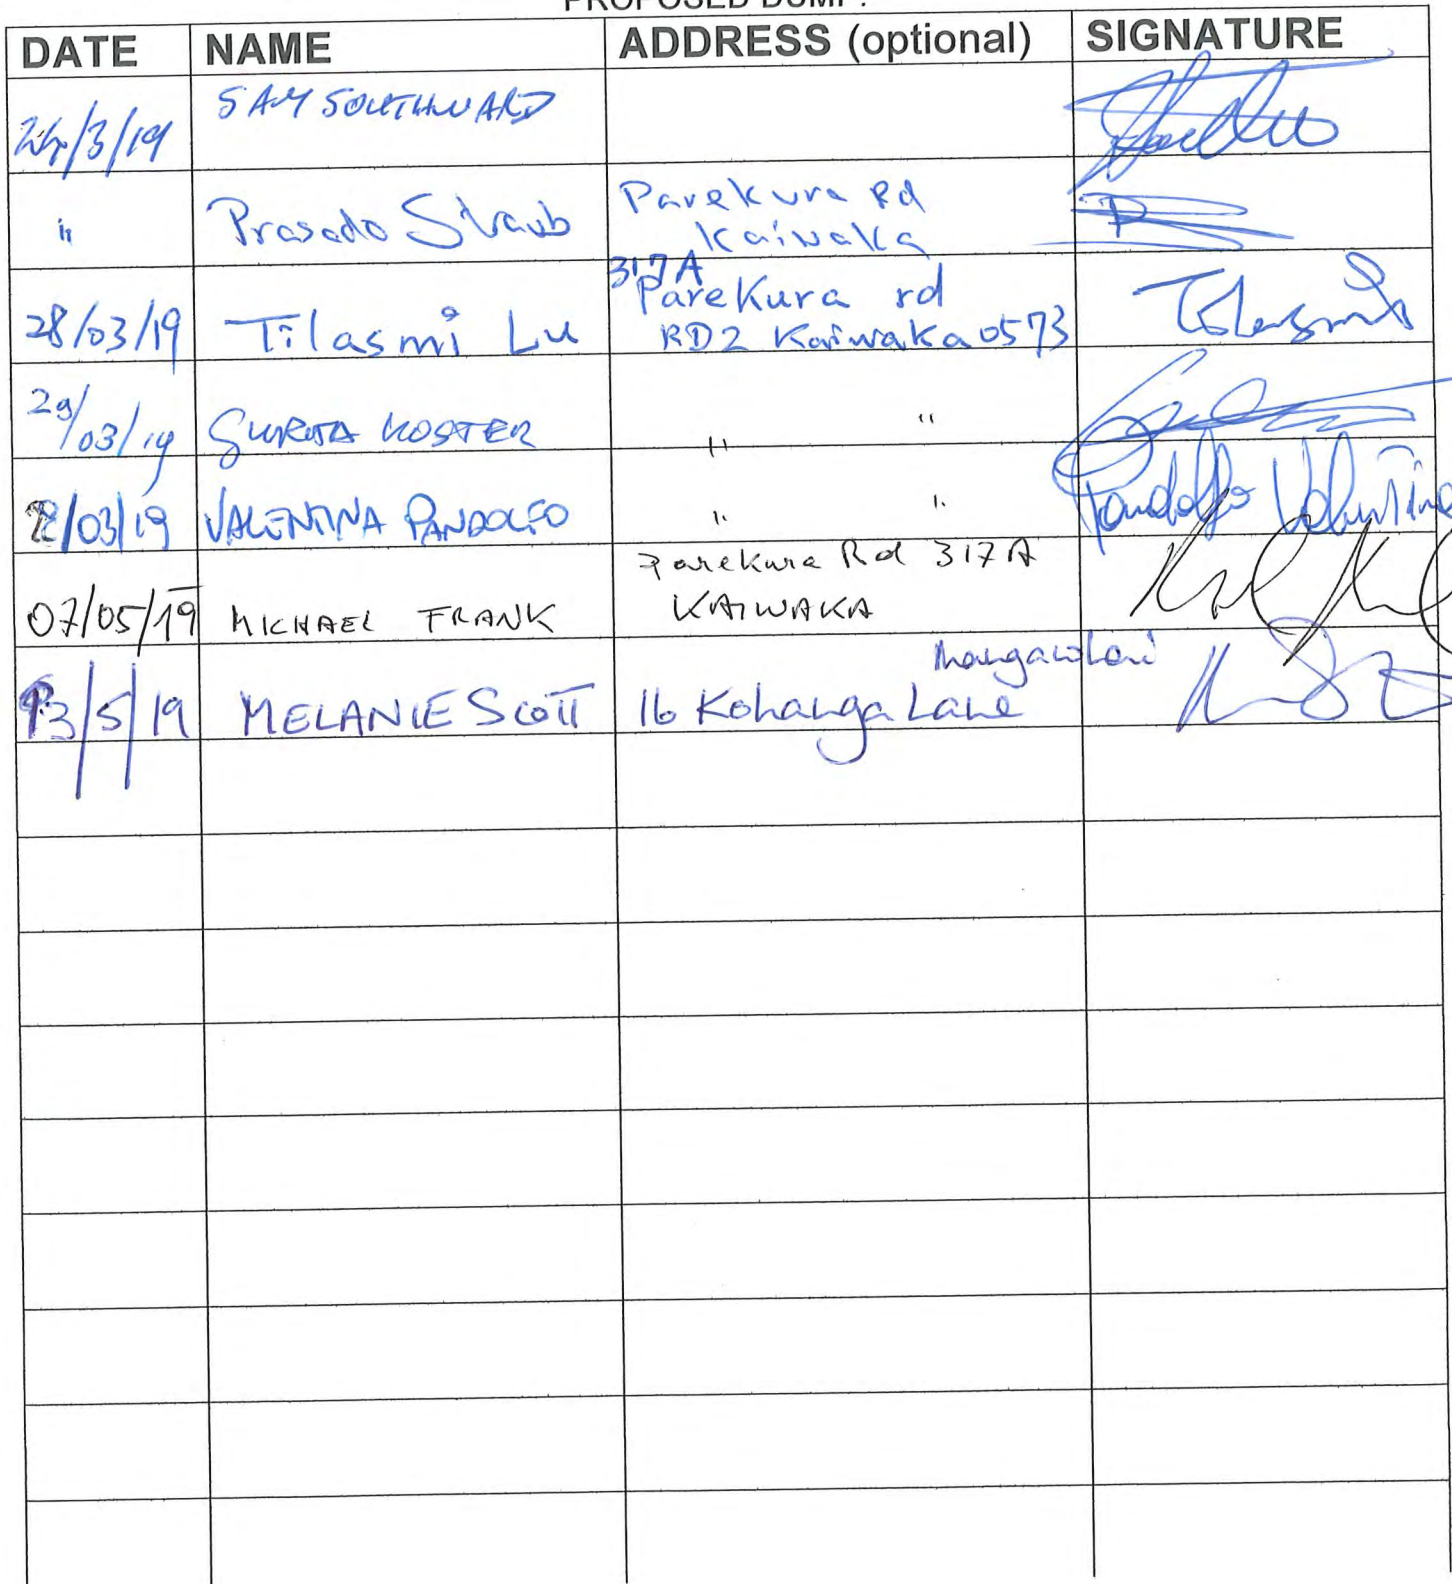 PROPOSED DUMP.
DATE NAME ADDRESS (optional) SIGNATURE
/3/19 SAM SOUTHWARD
" Prasado Straub Parekura Rd
Kaiwaka
317A
28/03/19 Tilasmi Lu Parekura rd
RD2 Kaiwaka 0573 Tilasmi
29/03/19 KOSTER " "
/03/19 VALENTINA PANDOLFO " " Pandolfo Valentina
07/05/19 MICHAEL FRANK Parekura Rd 317A
KAIWAKA
Mangawhai
13/5/19 MELANIE SCOTT 16 Kohanga Lane